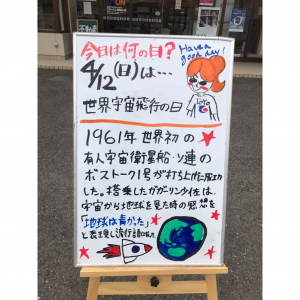 今日は何の日?
Have a
good day!
4/12(日)は…
世界宇宙飛行の日
1961年世界初の
有人宇宙衛星船・ソ連の
ボストーク1号が打ち上げに成功
した。搭乗したガガーリン少佐は、
宇宙から地球を見た時の感想を
「地球は青かった」
と表現し流行語になった